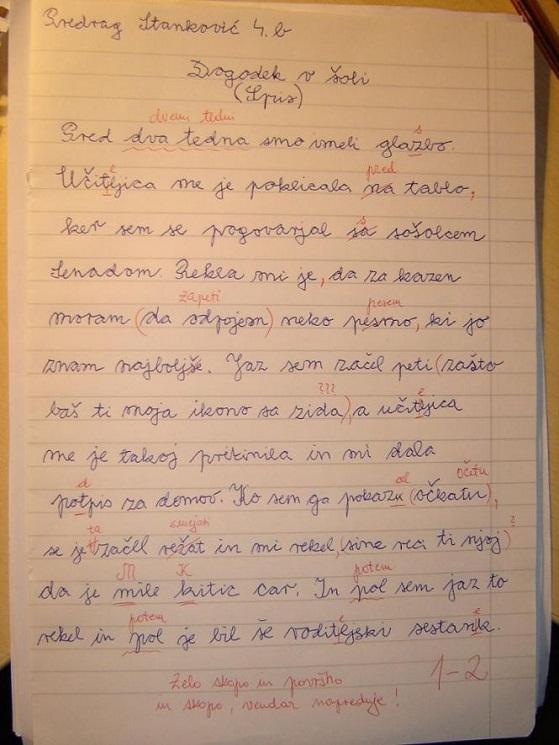 Predrag Stanković 4. b
Dogodek v šoli
(Spis)
dvemi tedni s
Pred dva tedna smo imeli glazbo.
e pred
Učitejica me je poklicala na tablo,
s
ker sem se pogovarjal sa sošolcem
Senadom. Rekla mi je, da za kazen
zapeti pesem
moram (da odpojem) neko pesmo, ki jo
znam najboljše. Jaz sem začel peti (zašto
??? e
baš ti moja ikono sa zida), a učitejica
me je takoj prekinila in mi dala
d al očetu
potpis za domov. Ko sem ga pokazu (očkatu),
ta smejati
se je začel režat in mi rekel (sine reci ti njoj)?
M K potem
da je mile kitic car. In pol sem jaz to
potem e e
rekel in pol je bil še roditejski sestank.
Zelo skopo in površno
in skopo, vendar napreduje!
1-2